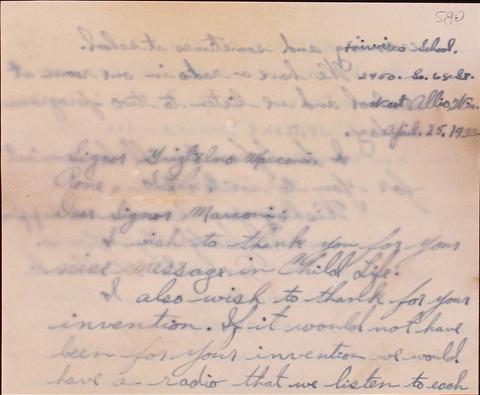 590
Fairview School.
2450. So. 68 St.
West Allis, Wis.
April 25, 1933
Signor Guglielmo Marconi.
Rome, Italy
Dear Signor Marconi:
I wish to thank you for your
nice message in Child Life.
I also wish to thank for your
invention. If it would not have
been for your invention we would
have a radio that we listen to each